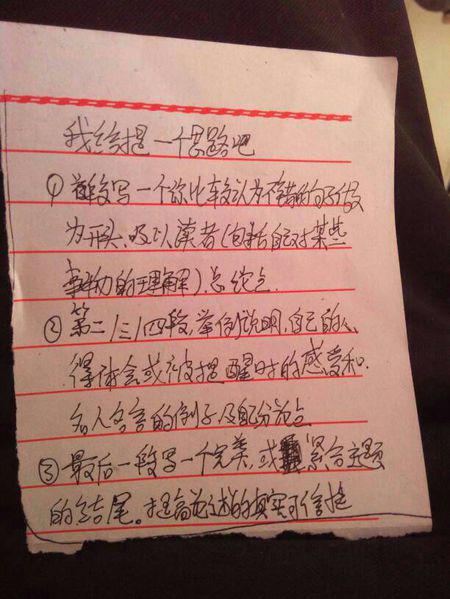 我给提一个思路吧
①首段写一个你比较认为不错的句子做
为开头、吸引读者(包括自己对某些
事物的理解)、总论点.
②第二/三/四段,举例说明,自己的心
得体会或被提醒时的感受和
名人名言的例子及分论点
③最后一段写一个完美,或 紧合主题
的结尾。提高论述的真实可信性